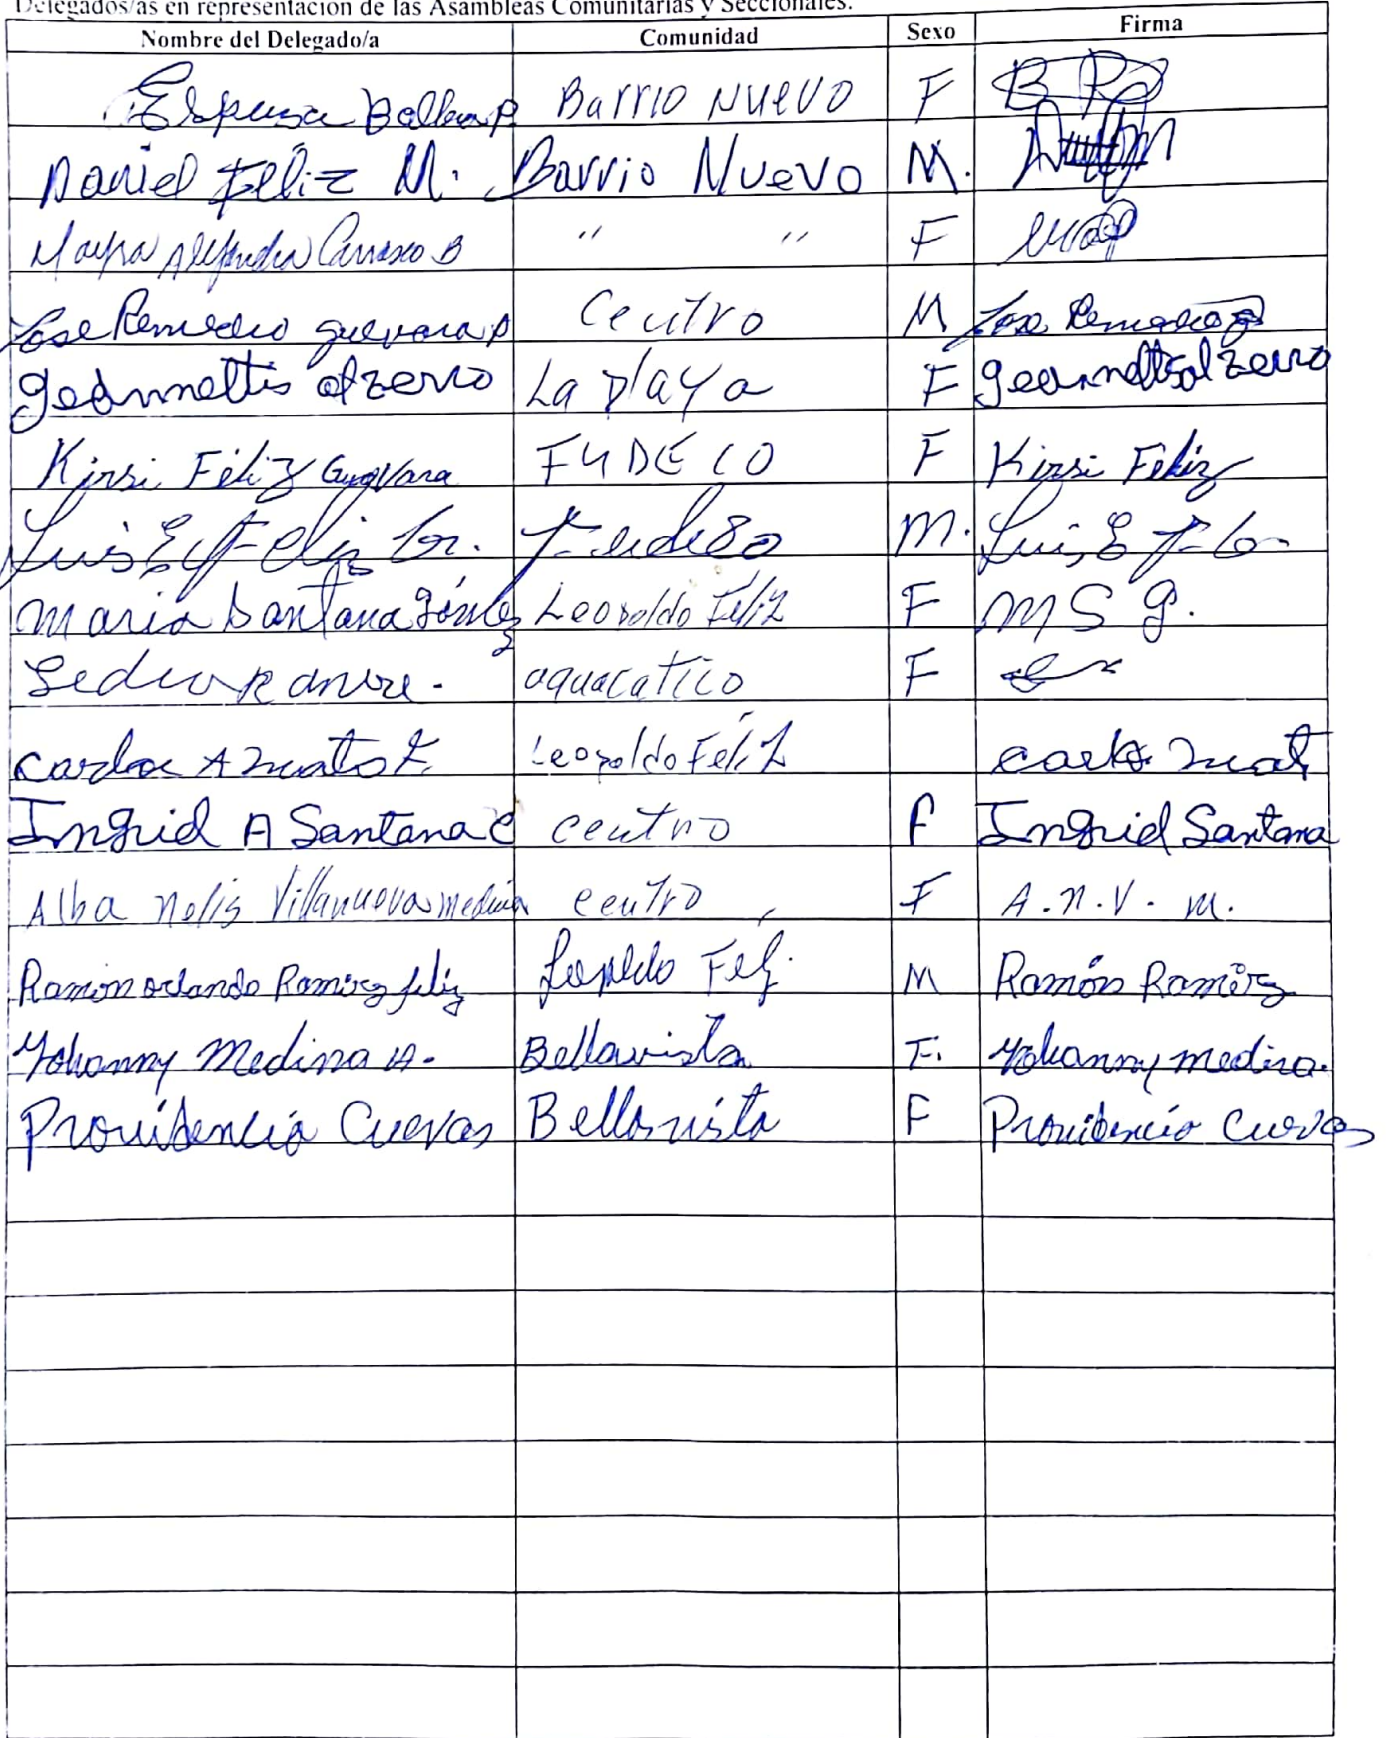 Delegados/as en representación de las Asambleas Comunitarias y Seccionales.
Nombre del Delegado/a Comunidad Sexo Firma
Barrio Nuevo F
Daniel Féliz M. Barrio Nuevo M.
Mayra Alejandra Carrasco B " " F
Jose Remedio guevara p Centro M Jose Remedio
geannettis alzerro La playa F geannettis alzerro
Kirsi Féliz Guevara FUDECO F Kirsi Féliz
Luis E. Feliz M. Luis E
Maria Santana Gómez Leopoldo Féliz F M S g.
aguacatico F
Carlos A Leopoldo Féliz Carlos
Ingrid A Santana C Centro F Ingrid Santana
Alba Nelis Villanueva medina centro F A.n.V.m.
Ramon orlando Ramirez feliz M Ramón Ramírez
Yohanny Medina A. Bellavista F. Yohanny medina.
Providencia Cuevas Bellavista F Providencia Cuevas